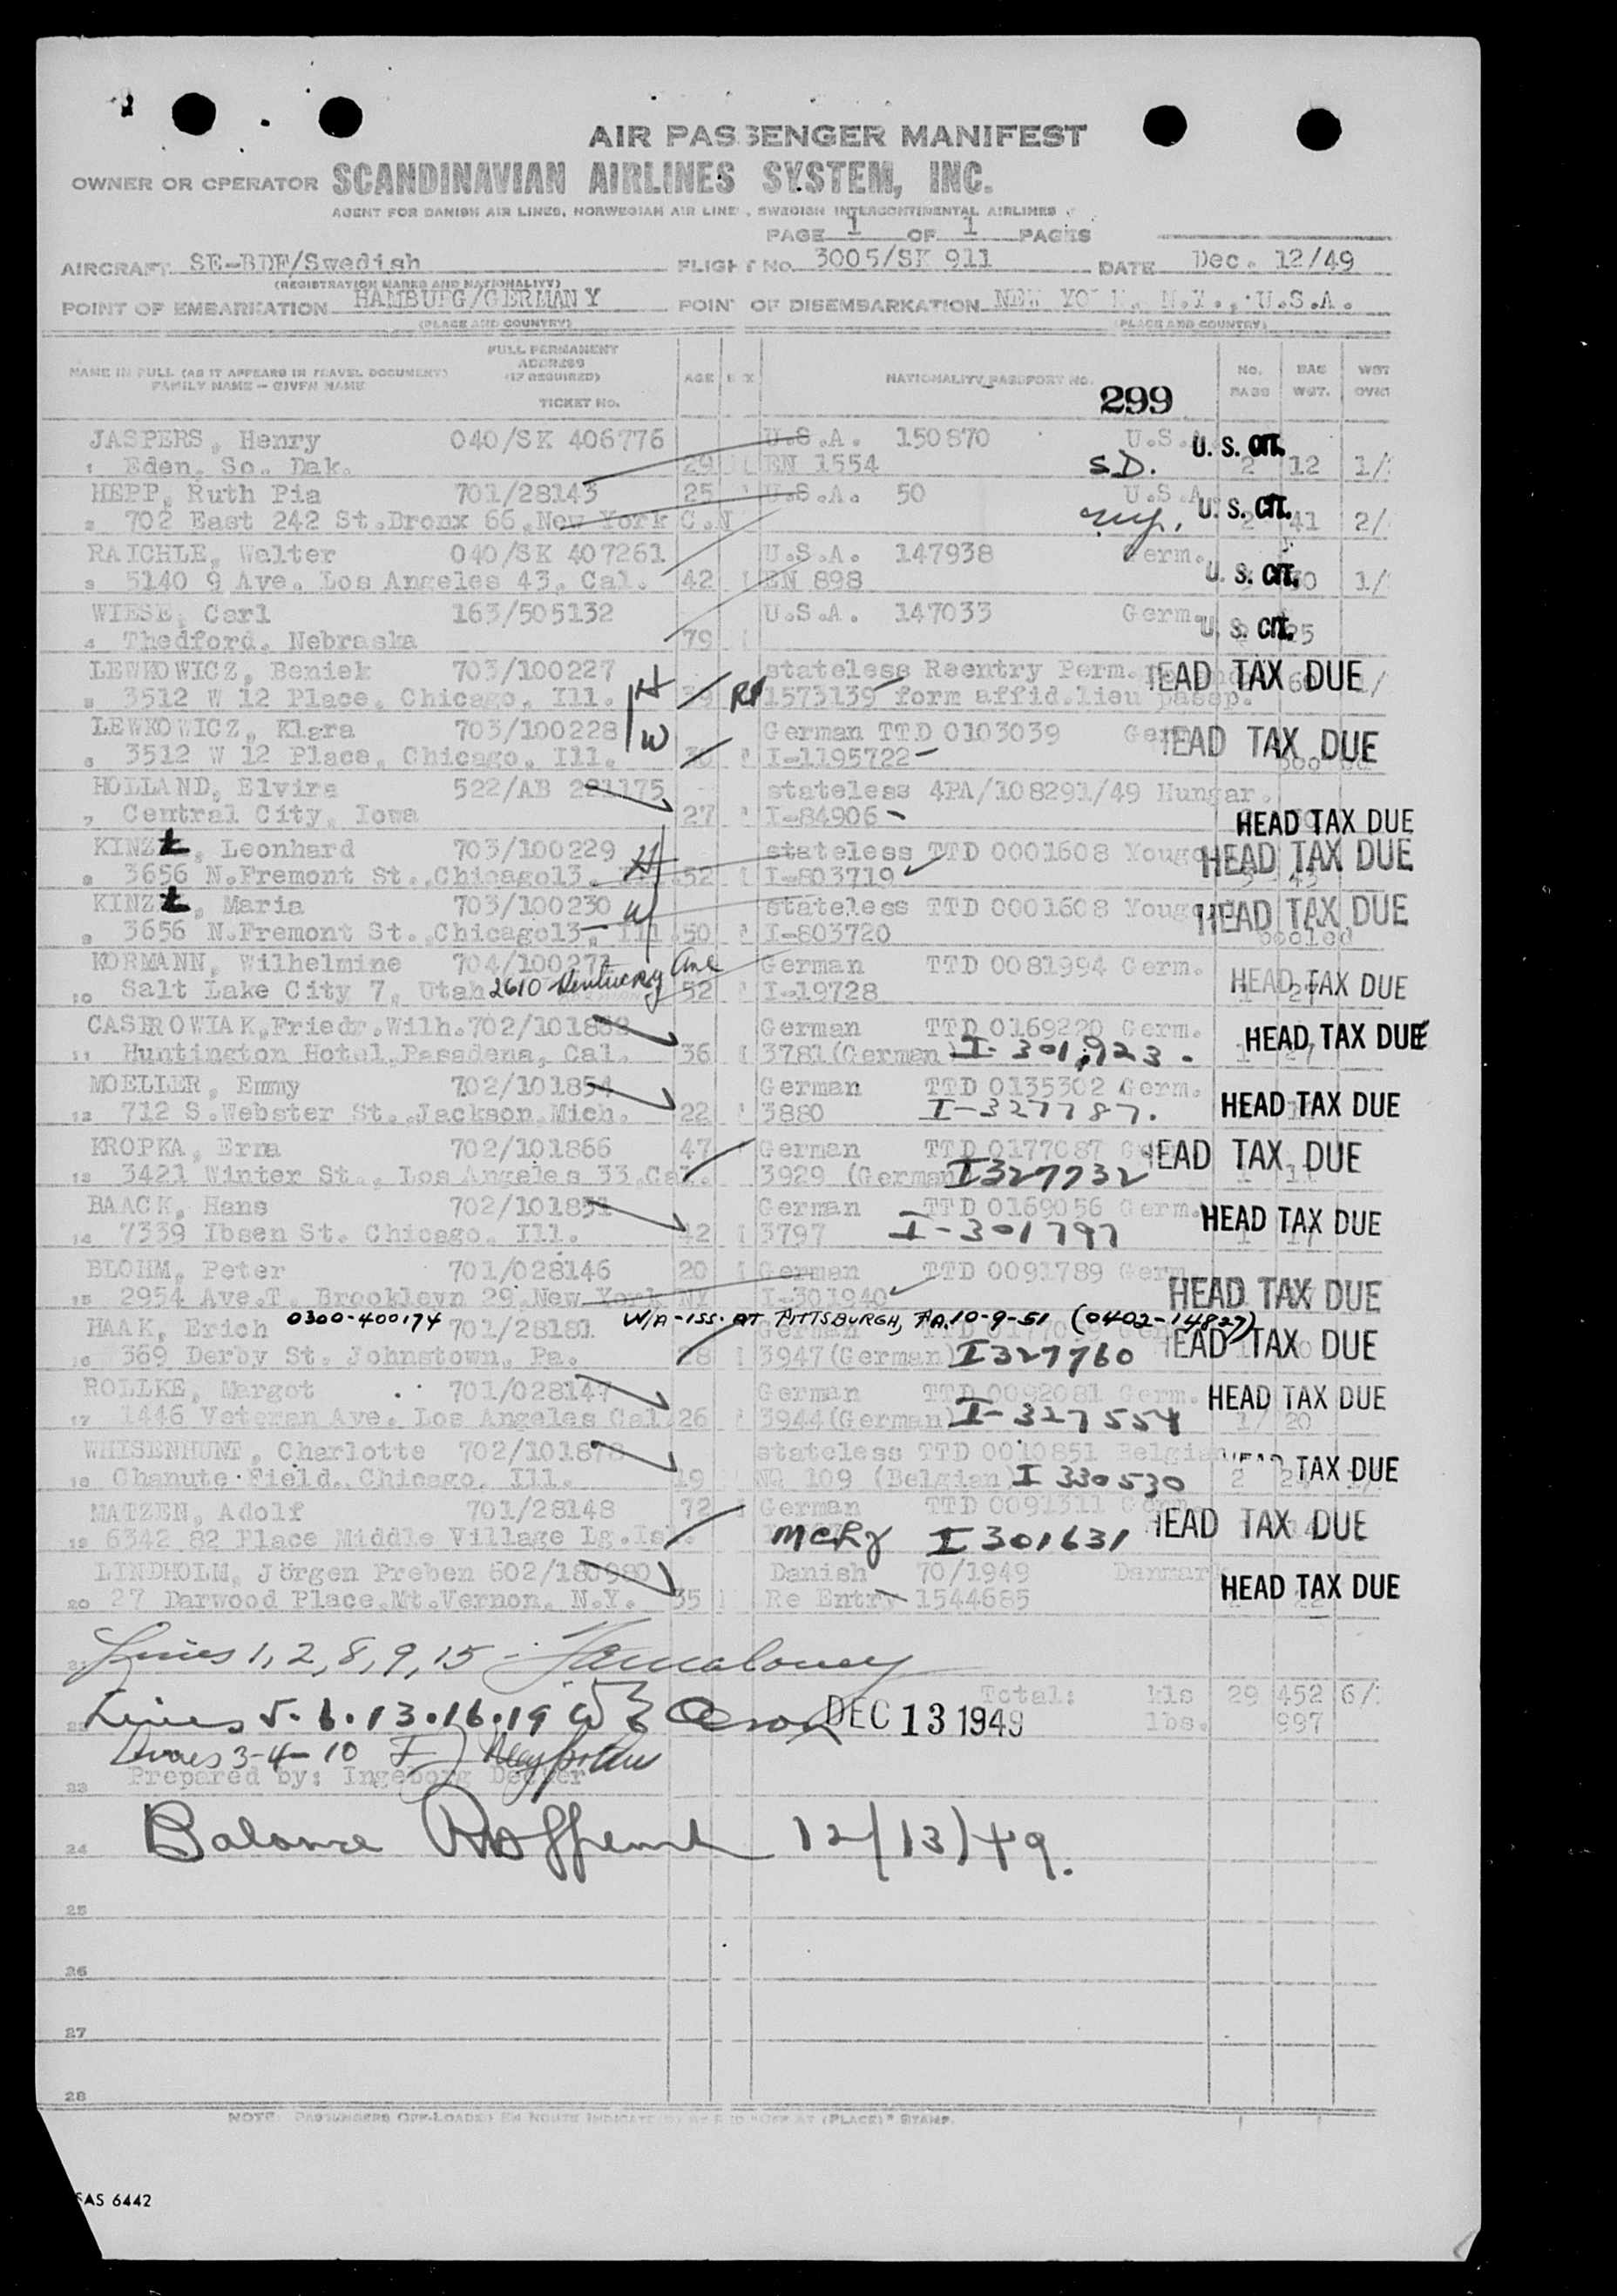 AIR PASSENGER MANIFEST
OWNER OR OPERATOR SCANDINAVIAN AIRLINES SYSTEM, INC.
AGENT FOR DANISH AIR LINES, NORWEGIAN AIR LINES, SWEDISH INTERCONTINENTAL AIRLINES
PAGE 1 OF 1 PAGES
AIRCRAFT SE-BDF/Swedish FLIGHT No. 3005/SK 911 DATE Dec. 12/49
(REGISTRATION MARKS AND NATIONALITY)
POINT OF EMBARKATION HAMBURG/GERMANY POINT OF DISEMBARKATION NEW YORK, N.Y., U.S.A.
(PLACE AND COUNTRY) (PLACE AND COUNTRY)
NAME IN FULL (AS IT APPEARS IN TRAVEL DOCUMENT) FAMILY NAME – GIVEN NAME FULL PERMANENT ADDRESS (IF REQUIRED) TICKET No. AGE SEX NATIONALITY PASSPORT NO. No. PASS BAG WGT.
299
JASPERS, Henry 040/SK 406776 U.S.A. 150870 U.S.A. U. S. CIT.
1 Eden. So. Dak. 29 EN 1554 S.D. 2 12 1/
HEPP, Ruth Pia 701/28143 25 U.S.A. 50 U.S.A. U. S. CIT.
2 702 East 242 St.Bronx 66,New York C.N N.Y. 2 41 2/
RAICHLE, Walter 040/SK 407261 U.S.A. 147938 Germ.
3 5140 9 Ave. Los Angeles 43. Cal. 42 EN 898 U. S. CIT. 1/
WIESE, Carl 163/505132 U.S.A. 147033 Germ. U. S. CIT.
4 Thedford. Nebraska 79 25
LEWKOWICZ, Beniek 703/100227 H stateless Reentry Perm. HEAD TAX DUE
5 3512 W 12 Place, Chicago, Ill. 39 RP 1573139 form affid.lieu passp. 1/
LEWKOWICZ, Klara 703/100228 W German TTD 0103039 Germ. HEAD TAX DUE
6 3512 W 12 Place, Chicago, Ill. I-1195722
HOLLAND, Elvira 522/AB 221175 stateless 4PA/108291/49 Hungar.
7 Central City, Iowa 27 I-84906 HEAD TAX DUE
KINZ, Leonhard 703/100229 H stateless TTD 0001608 Yougo HEAD TAX DUE
8 3656 N.Fremont St.,Chicago13. Ill 52 I-803719
KINZ, Maria 703/100230 W stateless TTD 0001608 Yougo HEAD TAX DUE
9 3656 N.Fremont St.,Chicago13, Ill 50 I-803720 pooled
KORMANN, Wilhelmine 704/100271 German TTD 0081994 Germ.
10 Salt Lake City 7, Utah 2610 Kentucky Ave 52 I-19728 HEAD TAX DUE
CASIROWIAK,Friedr.Wilh.702/101853 German TTD 0169220 Germ.
11 Huntington Hotel,Pasadena, Cal. 36 3781(German) I-301,923. HEAD TAX DUE
MOELLER, Emmy 702/101854 German TTD 0135302 Germ.
12 712 S.Webster St.,Jackson,Mich. 22 3880 I-327787. HEAD TAX DUE
KROPKA, Erna 702/101866 47 German TTD 0177087 Germ HEAD TAX DUE
13 3421 Winter St., Los Angeles 33,Cal. 3929 (German) I327732
BAACK, Hans 702/101851 German TTD 0169056 Germ. HEAD TAX DUE
14 7339 Ibsen St. Chicago, Ill. 42 3797 I-301797
BLOHM, Peter 701/028146 20 German TTD 0091789 Germ
15 2954 Ave.T. Brookleyn 29,New York NY I-301940 HEAD TAX DUE
0300-400174 W/A-ISS. AT PITTSBURGH, PA. 10-9-51 (0402-14827)
HAAK, Erich 701/28181 German HEAD TAX DUE
16 369 Derby St. Johnstown, Pa. 28 3947(German) I327760
ROLLKE, Margot 701/028147 German TTD 0092081 Germ. HEAD TAX DUE
17 1446 Veteran Ave. Los Angeles Cal 26 3944(German) I-327554 1/ 20
WHISENHUNT, Charlotte 702/101878 stateless TTD 0010851 Belgian HEAD TAX DUE
18 Chanute Field, Chicago, Ill. 19 NQ 109 (Belgian) I 330530 2
MATZEN, Adolf 701/28148 72 German TTD 0091311 HEAD TAX DUE
19 6342 82 Place Middle Village Lg.Isl. I 301631
LINDHOLM, Jörgen Preben 602/180980 Danish 70/1949 Danmark
20 27 Darwood Place,Mt.Vernon, N.Y. 35 Re Entry 1544685 HEAD TAX DUE
21 Lines 1, 2, 8, 9, 15
Total: kls 29 452 6/
22 Lines 5.6.13.16.19 DEC 13 1949 lbs. 997
Lines 3-4-10
23 Prepared by: Ingeborg Decker
24 Balance 12/13/49.
25
26
27
28
NOTE: PASSENGERS OFF-LOADED EN ROUTE INDICATE "OFF AT (PLACE)" STAMP.
SAS 6442